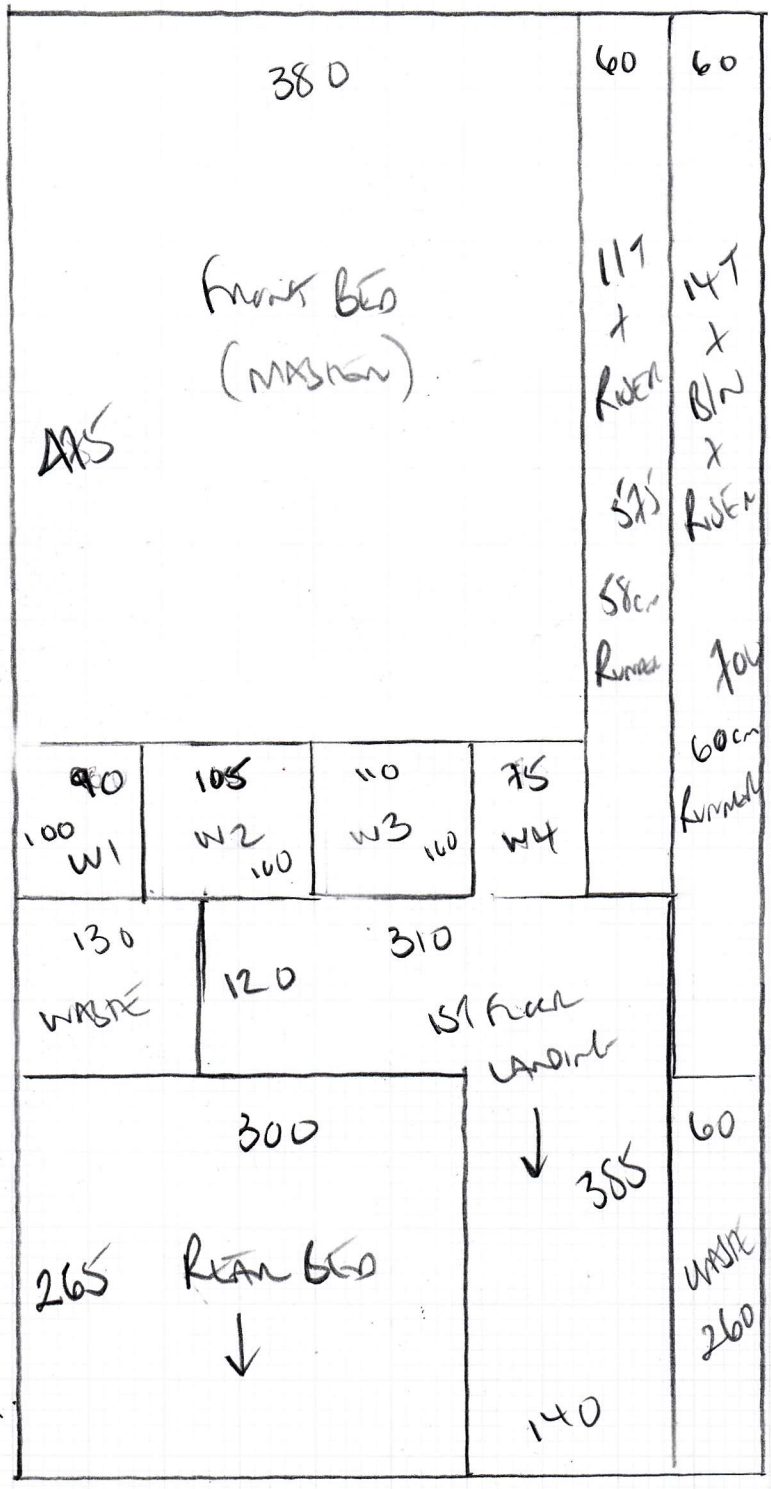 380
60
60
FRONT BED
(MASTER)
475
11T
X
RISER
575
58cm
RUNNER
14T
X
B/N
X
RISER
700
60cm
RUNNER
90
100
W1
105
W2
100
110
W3
100
75
W4
130
WASTE
120
310
1ST FLOOR
LANDING
↓
385
140
300
265
REAR BED
↓
60
WASTE
260